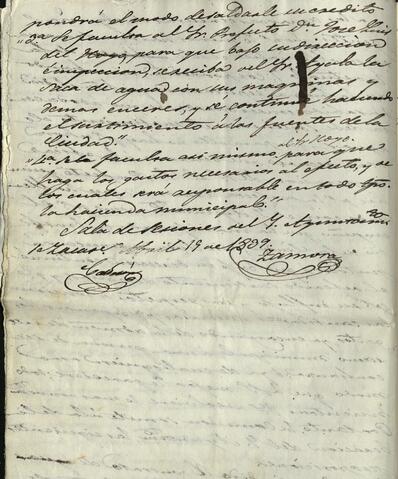 pondrá el modo de saldarle su credito
"3a. Se faculta al Sr. Prefecto Dn. José Luis
del Hoyo, para que bajo su direccion
é inspeccion, se reciba del Sr. Ayala la
saca de agua con sus maquinas y
demas enceres, y se continue haciendo
el surtimiento á las fuentes de la
Ciudad."
al Sr. Hoyo
"4a. Se le faculta asi mismo, para que
haga los gastos necesarios al efecto, y de
los cuales será responsable en todo tpo.
la hacienda municipal."
Sala de Sesiones del Y. Ayuntamto.
de Zacats. Abril 19 de 1839.
Zamora